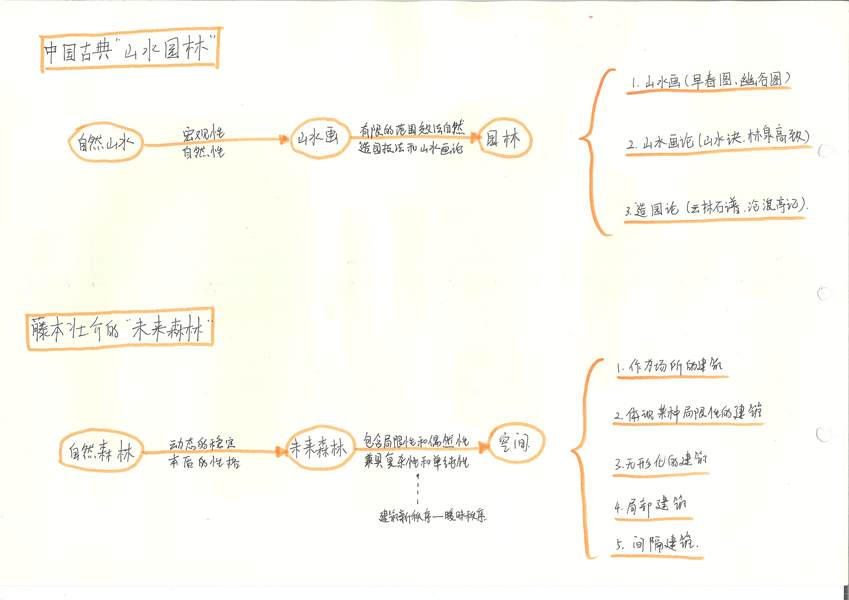 中国古典"山水园林"
自然山水
宏观性
自然性
山水画
有限的范围效法自然
造园技法和山水画论
园林
1.山水画(早春图、幽谷图)
2.山水画论(山水诀.林泉高致)
3.造园论(云林石谱.沧浪亭记).
藤本壮介的"未来森林"
自然森林
动态的稳定
本后的性格
未来森林
包含局限性和偶然性
兼具复杂性和单纯性
空间
建筑新秩序—暧昧秩序
1.作为场所的建筑
2.体现某种局限性的建筑
3.无形化的建筑
4.局部建筑
5.间隔建筑.